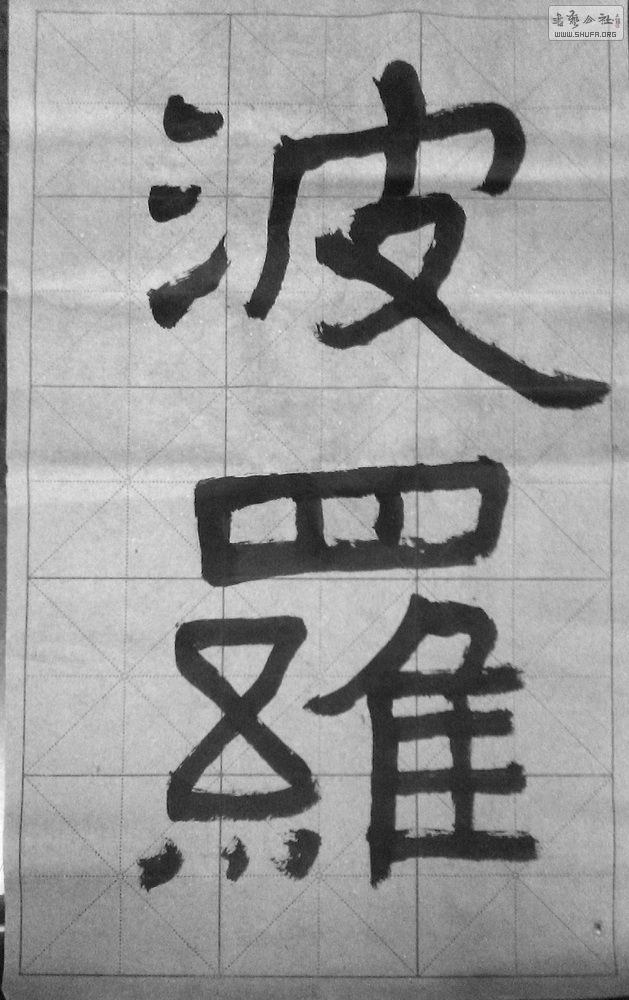 波羅
書藝公社
WWW.SHUFA.ORG